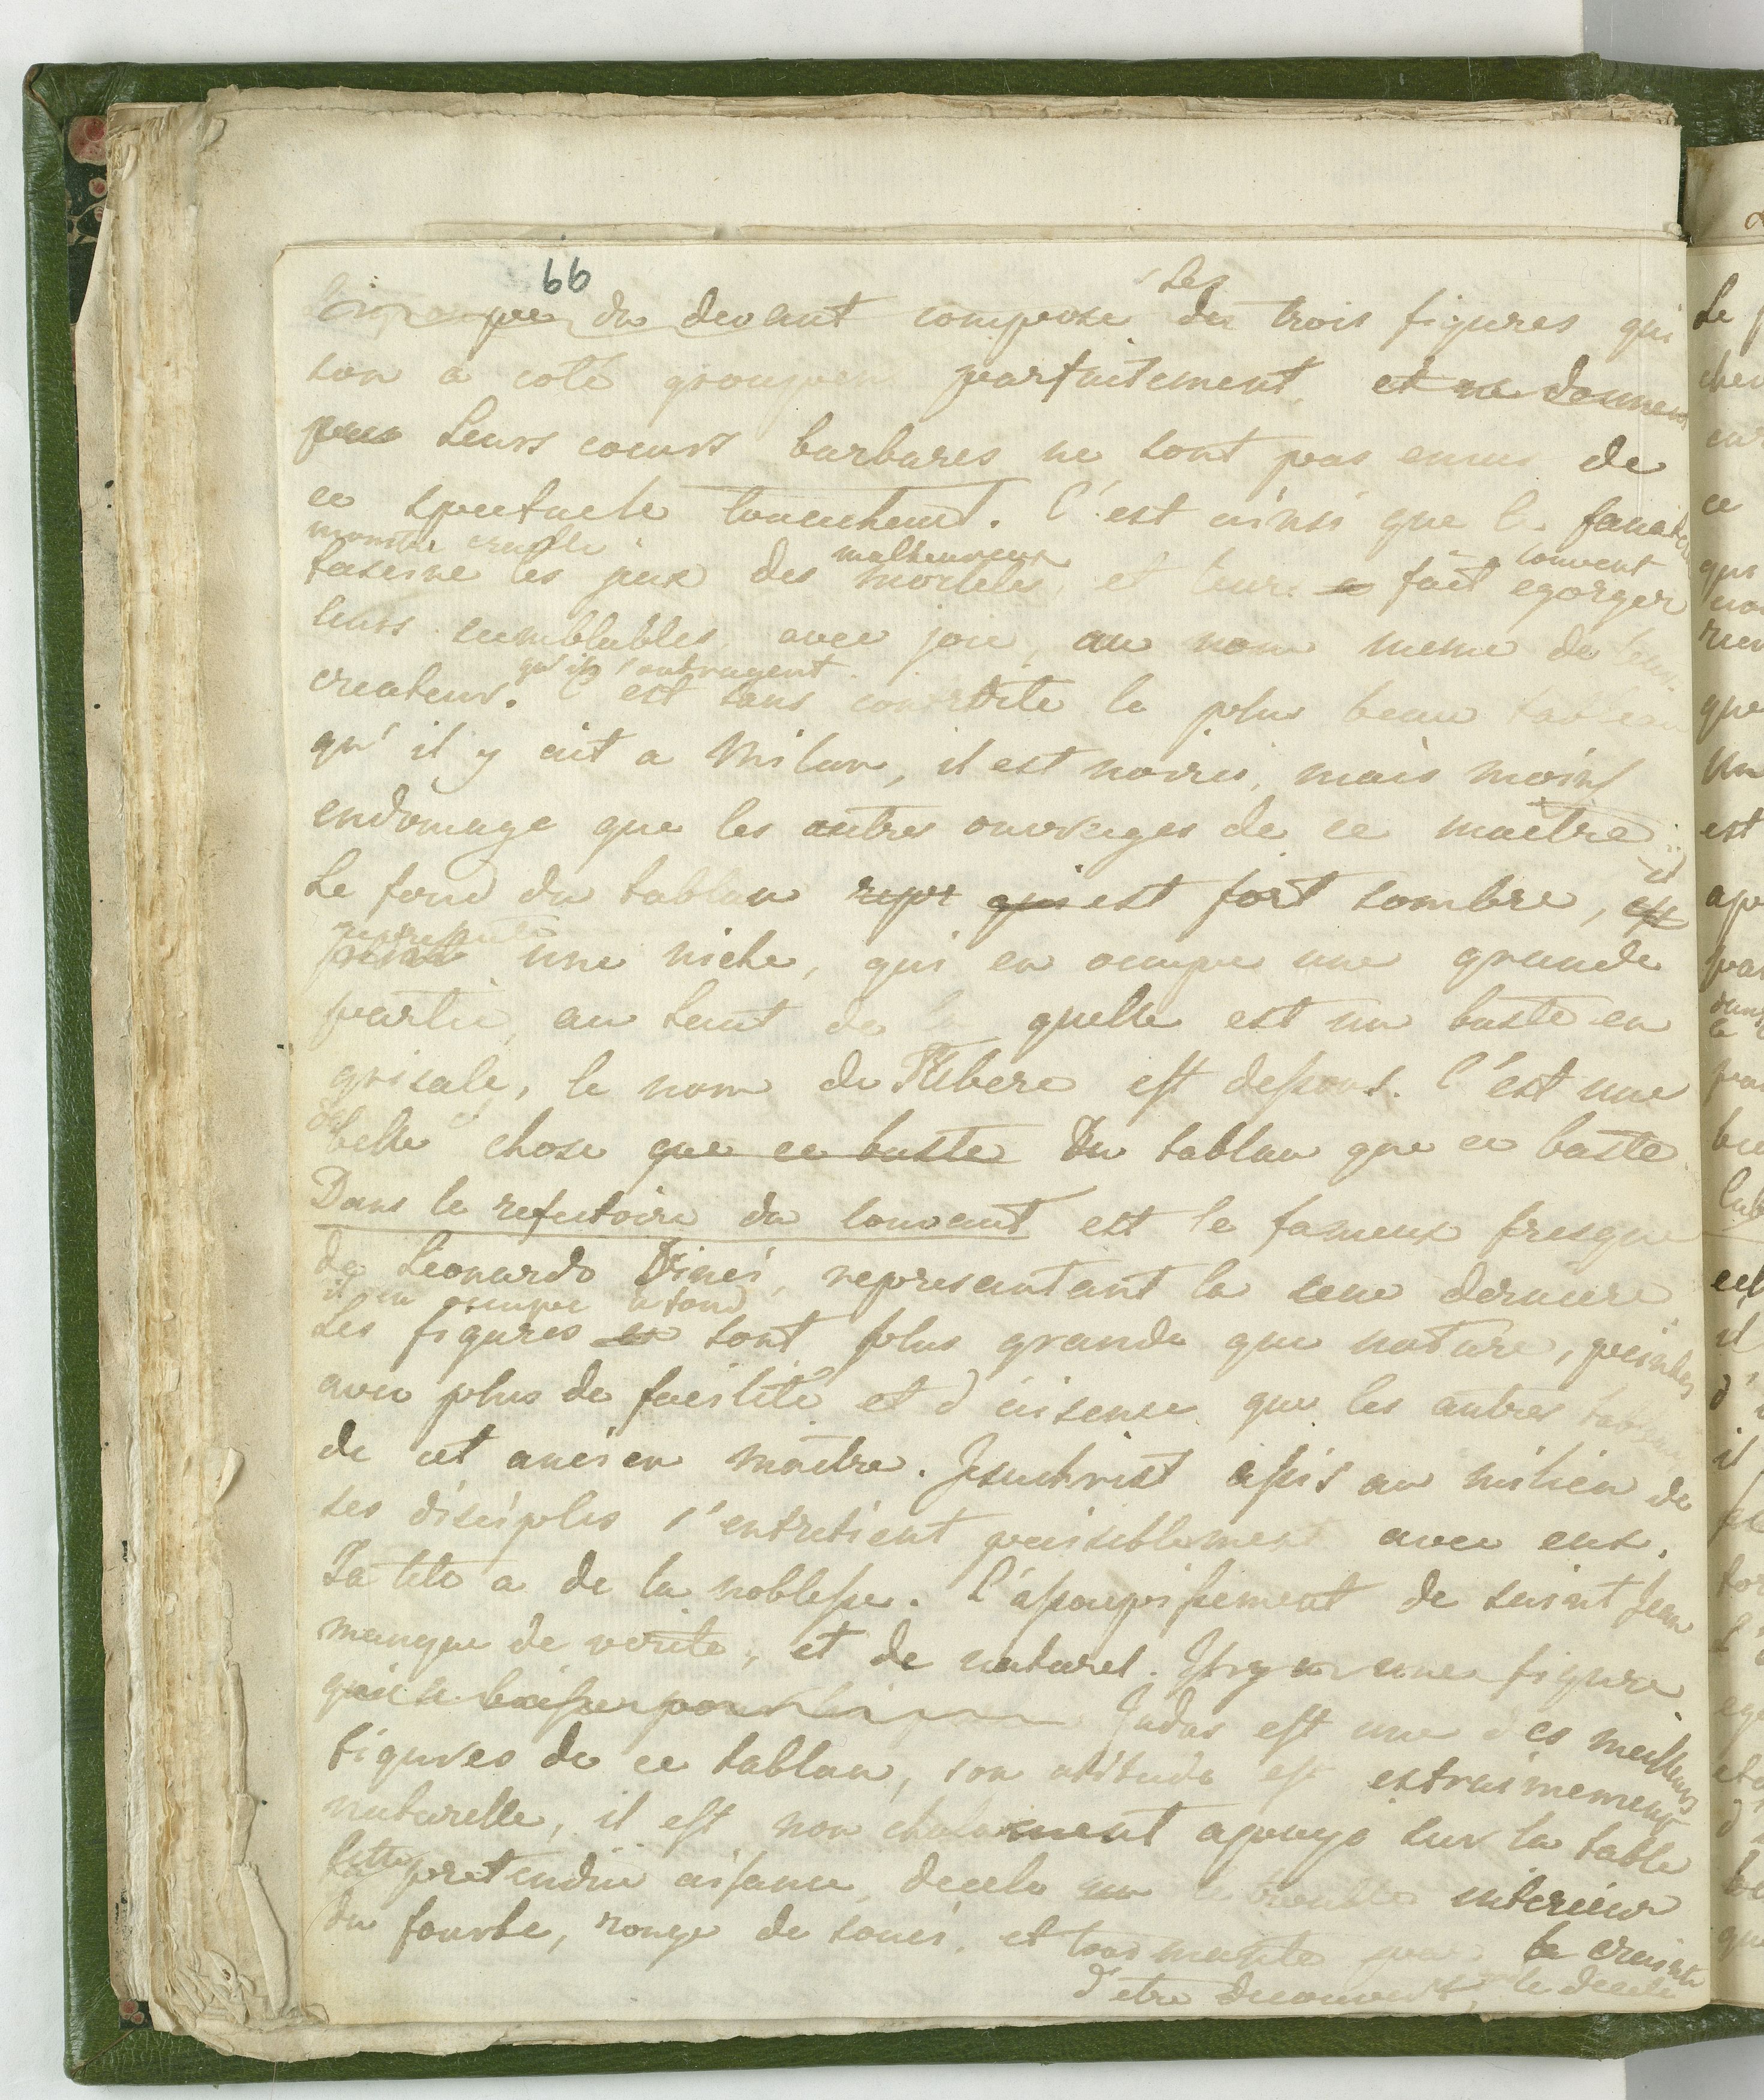 66
du devant compose des trois figures qui
Les
son a coté groupen parfaitement. et ne donnent
pas Leurs coeurs barbares ne sont pas emus de
ce spectacle touchent. C'est ainsi que le
monstre cruelle
fascine les yeux des mortels, et leurs fait egorger
malheureux souvent
leurs semblables avec joie, au nom meme de leur
createur. C'est sans contredite le plus beau tableau
qu'ils outragent
qu'il y ait a Milan, il est noirci, mais moins
endomage que les autres ouvrages de ce maître
Le fond du tablau repr qui est fort sombre, est
il
represente
une niche, qui en occupe une grande
partie, au haut de la quelle est un buste en
grisale, le nom de Tibere est dessous. C'est une
belle chose que ce buste Du tablau que ce buste
Dans le refectoire du Couvent est le fameux fresque
de Leonardo Vinci, representant la cene derniere
il en occupe le fond
Les figures sont plus grande que nature, peintes
avec plus de facilité et d'aisence que les autres tableaux
de cet ancien maître. Jesuchrist assis au milieu de
ses disciples s'entretient paisiblement avec eux.
Sa tete a de la noblesse. L'assoupissement de saint Jean
manque de verite, et de naturel. Il y a une figure
qui se baisse pour Judas est une des meilleurs
figures de ce tablau, son atitude est extraimement
naturelle, il est non chalament apuyé sur la table
Cette pretendue aisance, decele le trouble interieur
du fourbe, rongé de souci, et tourmenté par la crainte
d'etre decouvert, le decele